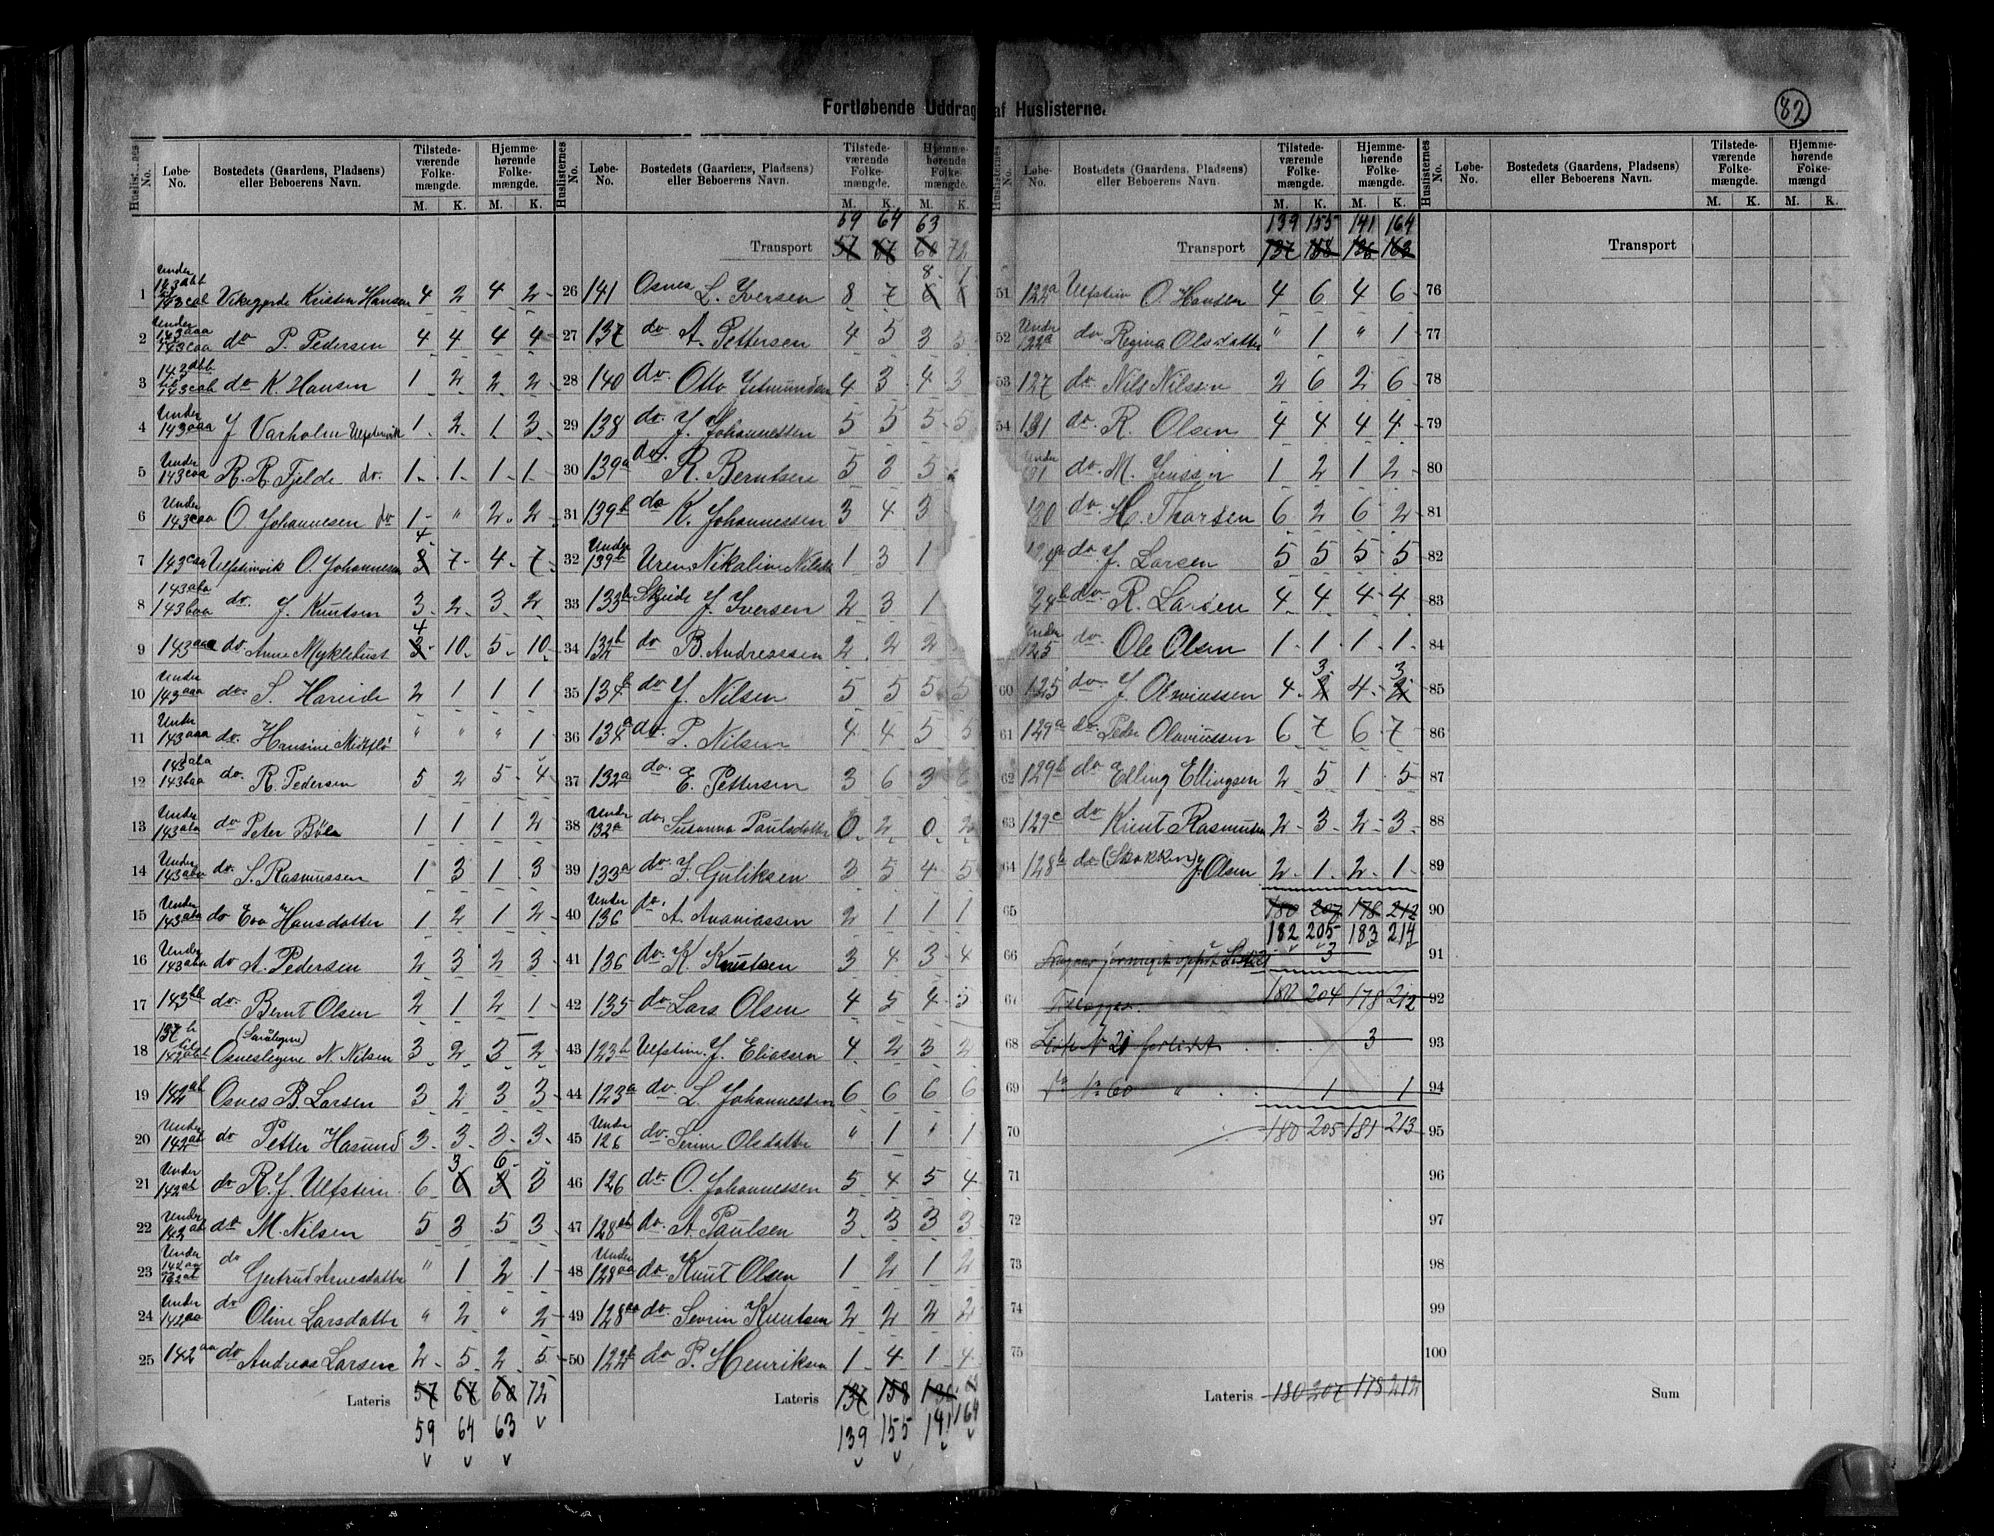 Fortløbende Uddrag af Huslisterne.
82
Huslisternes No.
Løbe-No.
Bostedets (Gaardens, Pladsens) eller Beboerens Navn.
Tilstede-værende Folke-mængde.
Hjemme-hørende Folke-mængde.
M. K. M. K.
1 Under 143 cab Vikegjerde Kristen Hansen 4 2 4 2
2 Under 143 aaa 143 caa do P. Pedersen 4 4 4 4
3 143 cab do K. Hansen 1 2 2 2
4 Under 143 aaa J Varholm Ulfstenvik 1 2 1 3
5 Under 143 caa R. R. Fjelde do. 1 1 1 1
6 Under 143 caa O Johannesen do 1 " 2 2
7 143 caa Ulfstenvik O. Johannesen 4 7 4 7
8 143 aba 143 baa do. J. Knutsen 3 2 3 2
9 143 aaa do Anne Myklebust 4 3 10 5 10
10 Under 143 aaa do. S. Hareide 2 1 1 1
11 Under 143 aaa do. Hansine Midtflø " " " 1
12 143 aba 143 baa do. R. Pedersen 5 2 5 4
13 Under 143 aba do Peter Böle 1 1 1 2
14 Under 143 aba do. S. Rasmussen 1 3 1 3
15 Under 143 aba do Eva Hansdatter 1 2 1 2
16 Under 143 aba do A. Pedersen 2 3 2 3
17 143 bb do. Bernt Olsen 2 1 2 1
18 137 b Osneslegene N. Nilsen 3 2 3 2
19 142 ab Osnes B. Larsen 3 2 3 3
20 Under 142 ab do Petter Hasund 3 3 3 3
21 Under 142 ab do R. J. Ulfstein 6 3 6 6 3 3
22 Under 142 ab do M. Nilsen 5 3 5 3
23 Under 142 aa 142 ab do Gertrud Arnesdatter " 1 2 1
24 Under 142 aa do Oline Larsdatter " 2 " 2
25 142 aa do Andreas Larsen 2 5 2 5
Lateris 57 67 60 72
59 64 63
Huslisternes No.
Løbe-No.
Bostedets (Gaardens, Pladsens) eller Beboerens Navn.
Tilstede-værende Folke-mængde.
Hjemme-hørende Folke-mængde.
M. K. M. K.
59 64 63
Transport 57 67 60 72
26 141 Osnes L. Iversen 8 7 8
27 137 do A. Pettersen 4 5 3
28 140 do. Otto Jetmundsen 4 3 4 3
29 138 do. J. Johannessen 5 5 5 5
30 139 a do. R. Berntsen 5 3 5
31 139 b do K. Johannessen 3 4 3
32 Under 139 b Uren Nikoline Nilsdt 1 3 1
33 133 b Skjeide J. Iversen 2 3 1
34 132 b do B. Andreassen 2 2 2
35 134 b do J. Nilsen 5 5 5 5
36 134 a do P. Nilsen 4 4 5 5
37 132 a do. E. Pettersen 3 6 3
38 Under 132 a do. Susanna Paulsdatter 0 2 0 2
39 133 a do. J. Guliksen 3 5 4 5
40 Under 136 do. A. Ananiassen 2 1 1 1
41 136 do. K. Knutsen 3 4 3 4
42 135 do. Lars Olsen 4 5 4 5
43 123 b Ulfstein J. Eliassen 4 2 3 2
44 123 a do. L. Johannessen 6 6 6 6
45 Under 126 do. Serine Olsdatter " 1 " 1
46 126 do. O. Johannessen 5 4 5 4
47 128 ab do. A. Paulsen 3 3 3 3
48 Under 128 aa do. Knut Olsen 1 2 1 2
49 128 aa do. Severin Knutsen 2 2 2 2
50 122 b do P. Henriksen 1 4 1 4
Lateris 137 158 136
139 155 141 164
Huslisternes No.
Løbe-No.
Bostedets (Gaardens, Pladsens) eller Beboerens Navn.
Tilstede-værende Folke-mængde.
Hjemme-hørende Folke-mængde.
M. K. M. K.
139 155 141 164
Transport 137 158 136 163
51 122 a Ulfstein O. Hansen 4 6 4 6
52 Under 122 a do. Regina Olsdatter " 1 " 1
53 127 do. Nils Nilsen 2 6 2 6
54 131 do. R. Olsen 4 4 4 4
Under do. M. Jenssen 1 2 1 2
do. H. Thorsen 6 2 6 2
do J. Larsen 5 5 5 5
do. R. Larsen 4 4 4 4
Under 125 do. Ole Olsen 1 1 1 1
60 125 do J. Olaviussen 4 3 2 4 3 2
61 129 a do. Peder Olaviussen 6 7 6 7
62 129 b do Elling Ellingsen 2 5 1 5
63 129 c do Knut Rasmussen 2 3 2 3
64 128 b do (Skakken) J. Olsen 2 1 2 1
65 180 207 178 212
182 205 183 214
66 3
67 180 204 178 212
68 3
69 No 60 " 1 1
70 180 205 181 213
71
72
73
74
75
Lateris 180 207 178 212
Huslisternes No.
Løbe-No.
Bostedets (Gaardens, Pladsens) eller Beboerens Navn.
Tilstede-værende Folke-mængde.
Hjemme-hørende Folke-mængd
M. K. M. K.
Transport
76
77
78
79
80
81
82
83
84
85
86
87
88
89
90
91
92
93
94
95
96
97
98
99
100
Sum